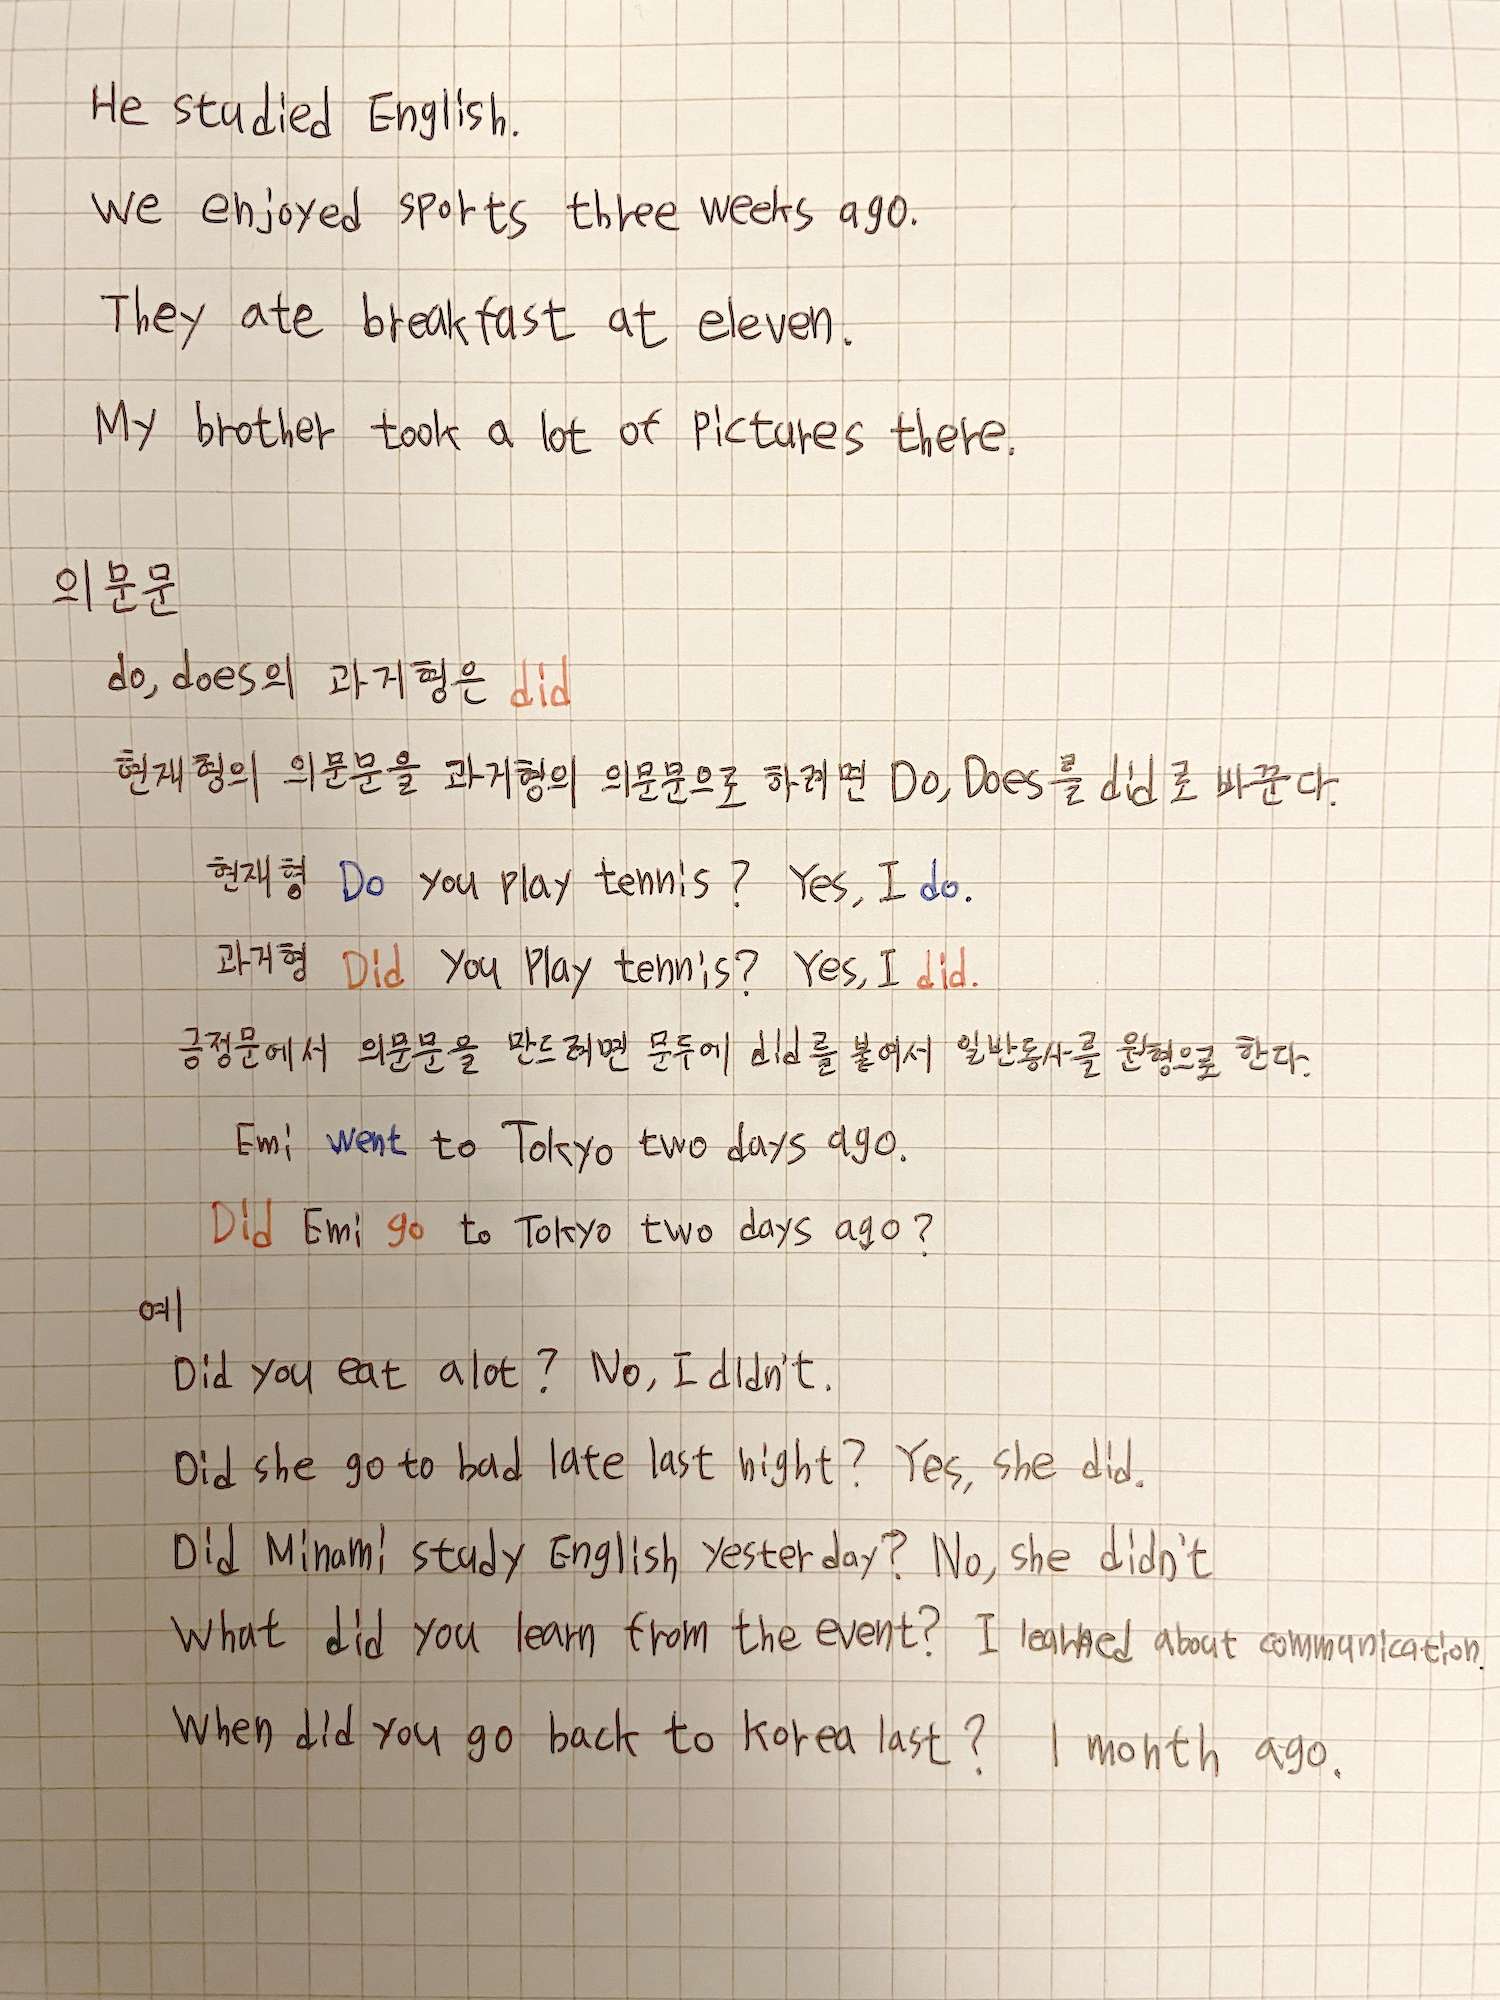 He studied English.
We enjoyed sports three weeks ago.
They ate breakfast at eleven.
My brother took a lot of pictures there.
의문문
do, does의 과거형은 did
현재형의 의문문을 과거형의 의문문으로 하려면 Do, Does를 did로 바꾼다.
현재형 Do you play tennis? Yes, I do.
과거형 Did you play tennis? Yes, I did.
긍정문에서 의문문을 만드려면 문두에 did를 붙여서 일반동사를 원형으로 한다.
Emi went to Tokyo two days ago.
Did Emi go to Tokyo two days ago?
예
Did you eat alot? No, I didn't.
Did she go to bad late last night? Yes, she did.
Did Minami study English yesterday? No, she didn't
What did you learn from the event? I learned about communication.
When did you go back to Korea last? 1 month ago.